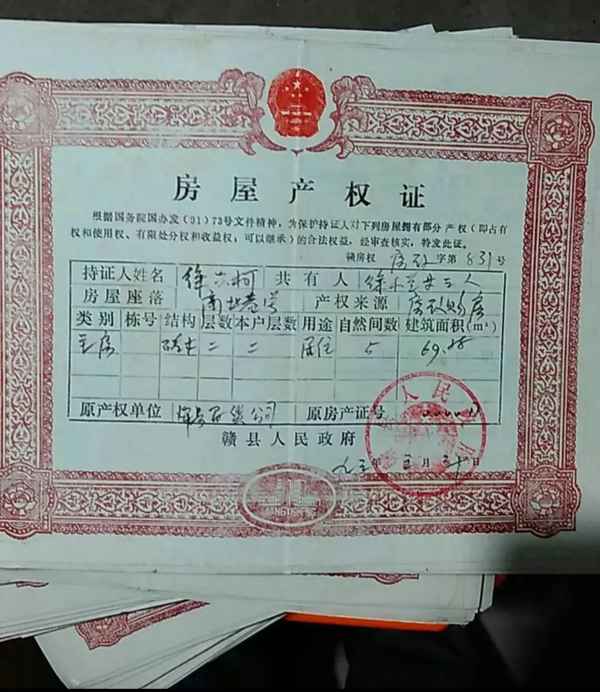 房屋产权证
根据国务院国办发(91)73号文件精神，为保护持证人对下列房屋拥有部分产权(即占有
权和使用权、有限处分权和收益权，可以继承)的合法权益，经审查核实，特发此证。
赣房权 房改 字第 831 号
持证人姓名 徐 柯 共有人 徐小兰共三人
房屋座落 南北巷 号 产权来源 房改购房
类别 栋号 结构 层数 本户层数 用途 自然间数 建筑面积(m²)
主房 砖木 二 二 居住 5 69.
原产权单位 公司 原房产证号
赣县人民政府
九三年 三月三十日
人民